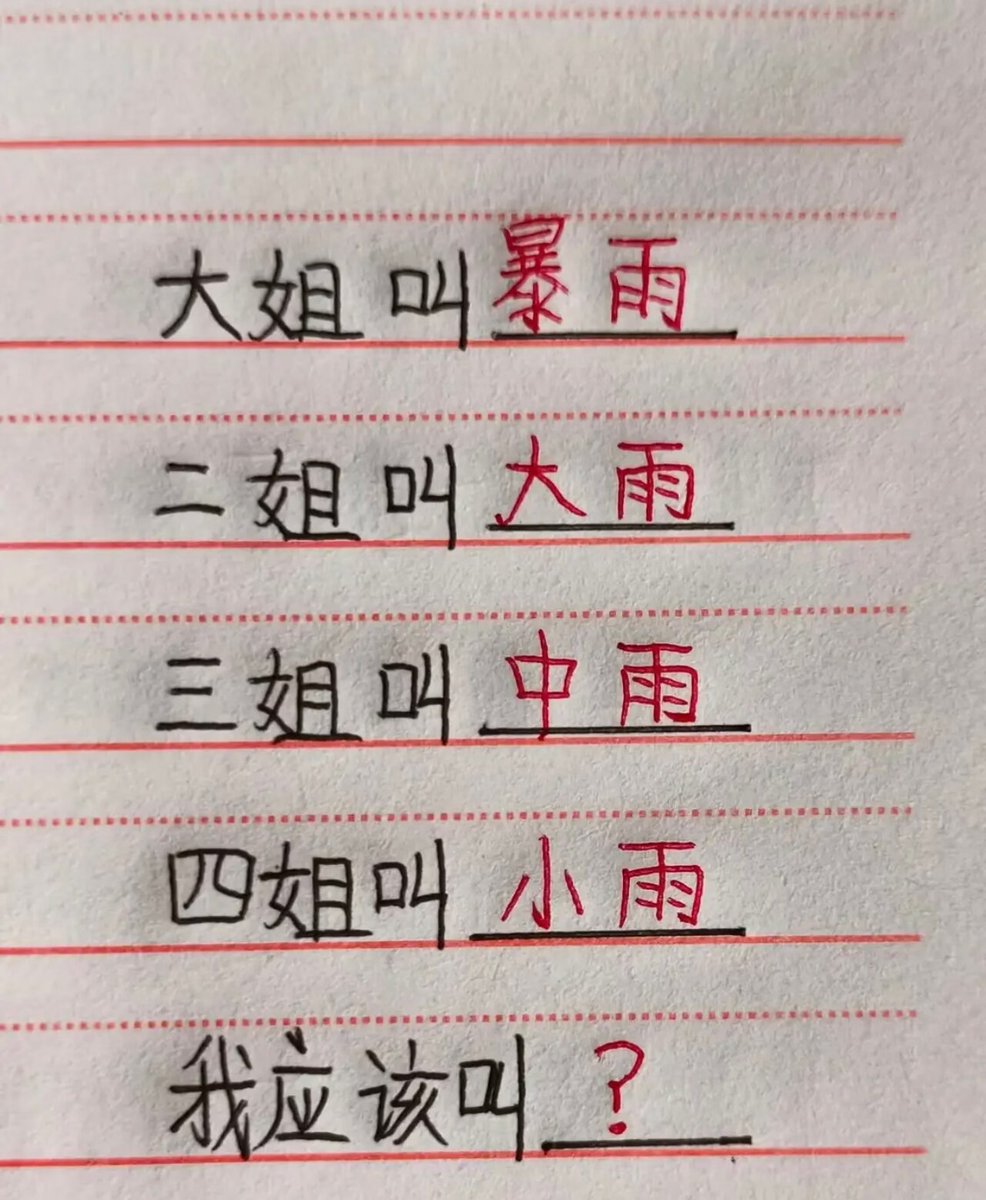 大姐叫暴雨
二姐叫大雨
三姐叫中雨
四姐叫小雨
我应该叫？